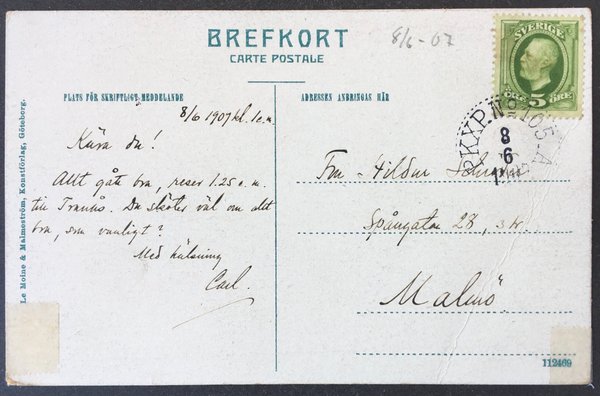 BREFKORT
CARTE POSTALE
8/6-07
SVERIGE
5
ÖRE ÖRE
PKXP.No105.A
8
6
PLATS FÖR SKRIFTLIGT MEDDELANDE
ADRESSEN ANBRINGAS HÄR
8/6 1907 kl. 1 e.m.
Kära du!
Allt gått bra, reser 1.25 e.m.
till Tranås. Du sköter väl om allt
bra, som vanligt?
Med hälsning
Carl.
Fru Hildur
Spångatan 28, 3 tr.
Malmö.
Le Moine & Malmeström, Konstförlag, Göteborg.
112469